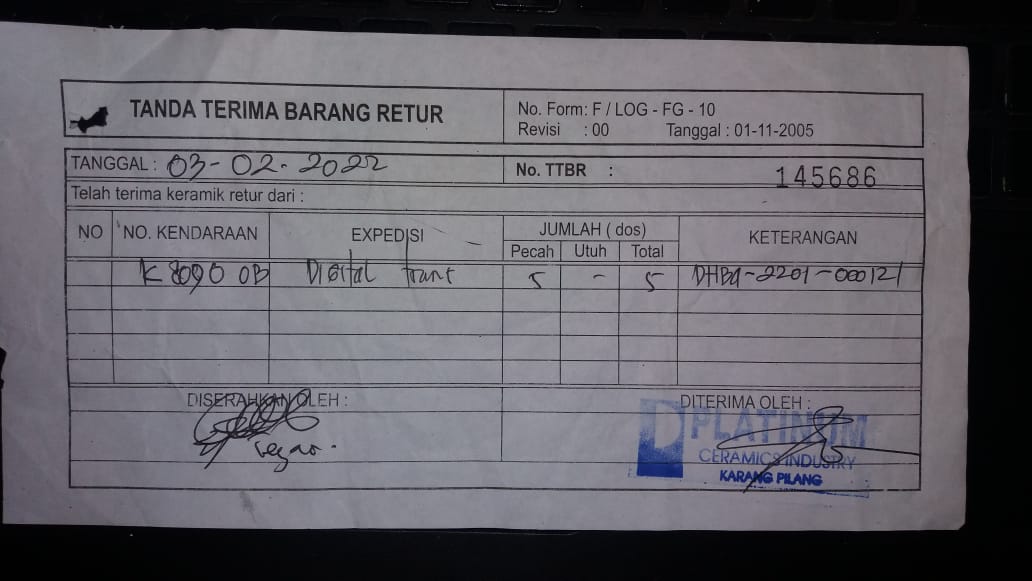 TANDA TERIMA BARANG RETUR
No. Form: F / LOG - FG - 10
Revisi : 00 Tanggal : 01-11-2005
TANGGAL : 03-02-2022
No. TTBR : 145686
Telah terima keramik retur dari :
NO NO. KENDARAAN EXPEDISI JUMLAH ( dos) KETERANGAN
Pecah Utuh Total
K 8090 OB Digital trans 5 - 5 DHBq-2201-000121
DISERAHKAN OLEH : DITERIMA OLEH :
PLATINUM
CERAMICS INDUSTRY
KARANG PILANG